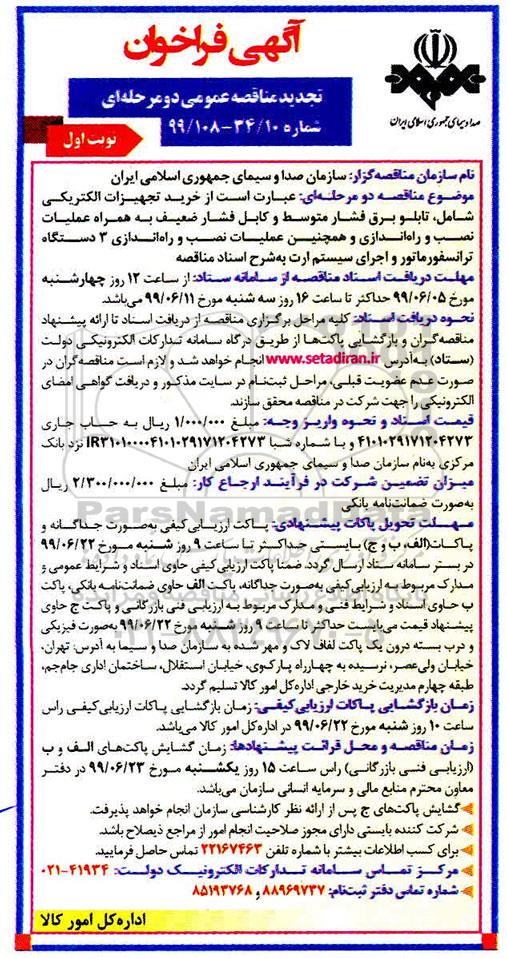 آگهی فراخوان
صدا و سیمای جمهوری اسلامی ایران
تجدید مناقصه عمومی دو مرحله‌ای
شماره ۳۴/۱۰-۹۹/۱۰۸
نوبت اول
نام سازمان مناقصه‌گزار: سازمان صدا و سیمای جمهوری اسلامی ایران
موضوع مناقصه دو مرحله‌ای: عبارت است از خرید تجهیزات الکتریکی
شامل، تابلو برق فشار متوسط و کابل فشار ضعیف به همراه عملیات
نصب و راه‌اندازی و همچنین عملیات نصب و راه‌اندازی ۳ دستگاه
ترانسفورماتور و اجرای سیستم ارت به‌شرح اسناد مناقصه
مهلت دریافت اسناد مناقصه از سامانه ستاد: از ساعت ۱۲ روز چهارشنبه
مورخ ۹۹/۰۶/۰۵ حداکثر تا ساعت ۱۶ روز سه شنبه مورخ ۹۹/۰۶/۱۱ می‌باشد.
نحوه دریافت اسناد: کلیه مراحل برگزاری مناقصه از دریافت اسناد تا ارائه پیشنهاد
مناقصه‌گران و بازگشایی پاکت‌ها از طریق درگاه سامانه تدارکات الکترونیکی دولت
(ستاد) به‌آدرس www.setadiran.ir انجام خواهد شد و لازم است مناقصه‌گران در
صورت عدم عضویت قبلی، مراحل ثبت‌نام در سایت مذکور و دریافت گواهی امضای
الکترونیکی را جهت شرکت در مناقصه محقق سازند.
قیمت اسناد و نحوه واریز وجه: مبلغ ۱/۰۰۰/۰۰۰ ریال به حساب جاری
۴۱۰۱۰۲۹۱۷۱۲۰۴۲۷۳ و با شماره شبا IR۳۱۰۱۰۰۰۰۴۱۰۱۰۲۹۱۷۱۲۰۴۲۷۳ نزد بانک
مرکزی به‌نام سازمان صدا و سیمای جمهوری اسلامی ایران
میزان تضمین شرکت در فرآیند ارجاع کار: مبلغ ۲/۳۰۰/۰۰۰/۰۰۰ ریال
به‌صورت ضمانت‌نامه بانکی
مهلت تحویل پاکات پیشنهادی: پاکت ارزیابی‌کیفی به‌صورت جداگانه و
پاکات(الف، ب و ج) بایستی حداکثر تا ساعت ۹ روز شنبه مورخ ۹۹/۰۶/۲۲
در بستر سامانه ستاد ارسال گردد. ضمنا پاکت ارزیابی‌کیفی حاوی اسناد و شرایط عمومی و
مدارک مربوط به ارزیابی‌کیفی به‌صورت جداگانه، پاکت الف حاوی ضمانت‌نامه بانکی، پاکت
ب حاوی اسناد و شرایط فنی و مدارک مربوط به ارزیابی فنی بازرگانی و پاکت ج حاوی
پیشنهاد قیمت می‌بایست حداکثر تا ساعت ۹ روز شنبه مورخ ۹۹/۰۶/۲۲ به‌صورت فیزیکی
و درب بسته درون یک پاکت لفاف لاک و مهر شده به سازمان صدا و سیما به آدرس: تهران،
خیابان ولی‌عصر، نرسیده به چهارراه پارک‌وی، خیابان استقلال، ساختمان اداری جام‌جم،
طبقه چهارم مدیریت خرید خارجی اداره‌کل امور کالا تسلیم گردد.
زمان بازگشایی پاکات ارزیابی‌کیفی: زمان بازگشایی پاکات ارزیابی‌کیفی راس
ساعت ۱۰ روز شنبه مورخ ۹۹/۰۶/۲۲ در اداره‌کل امور کالا می‌باشد.
زمان مناقصه و محل قرائت پیشنهادها: زمان گشایش پاکت‌های الف و ب
(ارزیابی فنی بازرگانی) راس ساعت ۱۵ روز یکشنبه مورخ ۹۹/۰۶/۲۳ در دفتر
معاون محترم منابع مالی و سرمایه انسانی سازمان می‌باشد.
گشایش پاکت‌های ج پس از ارائه نظر کارشناسی سازمان انجام خواهد پذیرفت.
شرکت کننده بایستی دارای مجوز صلاحیت انجام امور از مراجع ذیصلاح باشد.
برای کسب اطلاعات بیشتر با شماره تلفن ۲۲۱۶۷۴۶۳ تماس حاصل فرمایید.
مرکز تماس سامانه تدارکات الکترونیک دولت: ۴۱۹۳۴-۰۲۱
شماره تماس دفتر ثبت‌نام: ۸۸۹۶۹۷۳۷ و ۸۵۱۹۳۷۶۸
اداره‌کل امور کالا
ParsNamadData